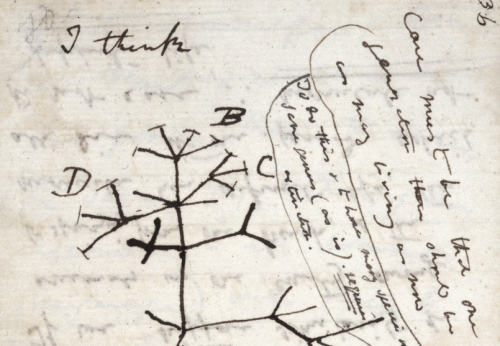 I think
36
Case must be that one
generation then should be
as many living as now
To do this & to have many species
same genus (as is). requires
extinction.
B
C
D